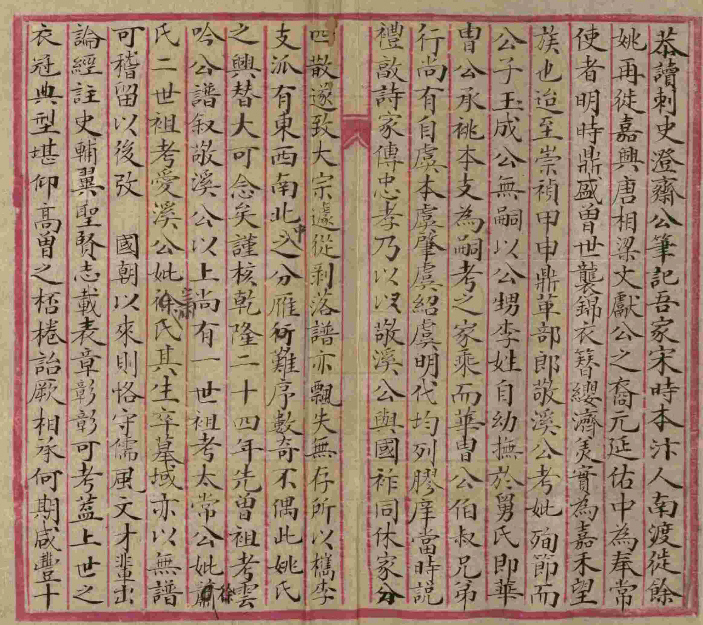 恭讀刺史澄齋公筆記吾家宋時本汴人南渡徙餘
姚再徙嘉興唐相梁文獻公之裔元延佑中為奉常
使者明時鼎盛曽世襲錦衣簪纓濟美實為嘉禾望
族也迨至崇禎甲申鼎革部郎敬溪公考妣殉節而
公子玉成公無嗣以公甥李姓自幼撫於舅氏即華
曺公承祧本支為嗣考之家乘而華曺公伯叔兄弟
行尚有自虞本虞肇虞紹虞明代均列膠庠當時説
禮敦詩家傳忠孝乃以敬溪公與國祚同休家分
四散遂致大宗遽從剥落譜亦飄失無存所以檇李
支派有東西南北中之分雁行難序數奇不偶此姚氏
之興替大可念矣謹核乾隆二十四年先曽祖考雲
吟公譜叙敬溪公以上尚有一世祖考太常公妣蕭徐
氏二世祖考愛溪公妣徐蕭氏其生卒墓域亦以無譜
可稽留以後攷 國朝以來則恪守儒風文才輩出
論經註史輔翼聖賢志載表章彰彰可考蓋上世之
衣冠典型堪仰高曽之桮棬詒厥相承何期咸豐十